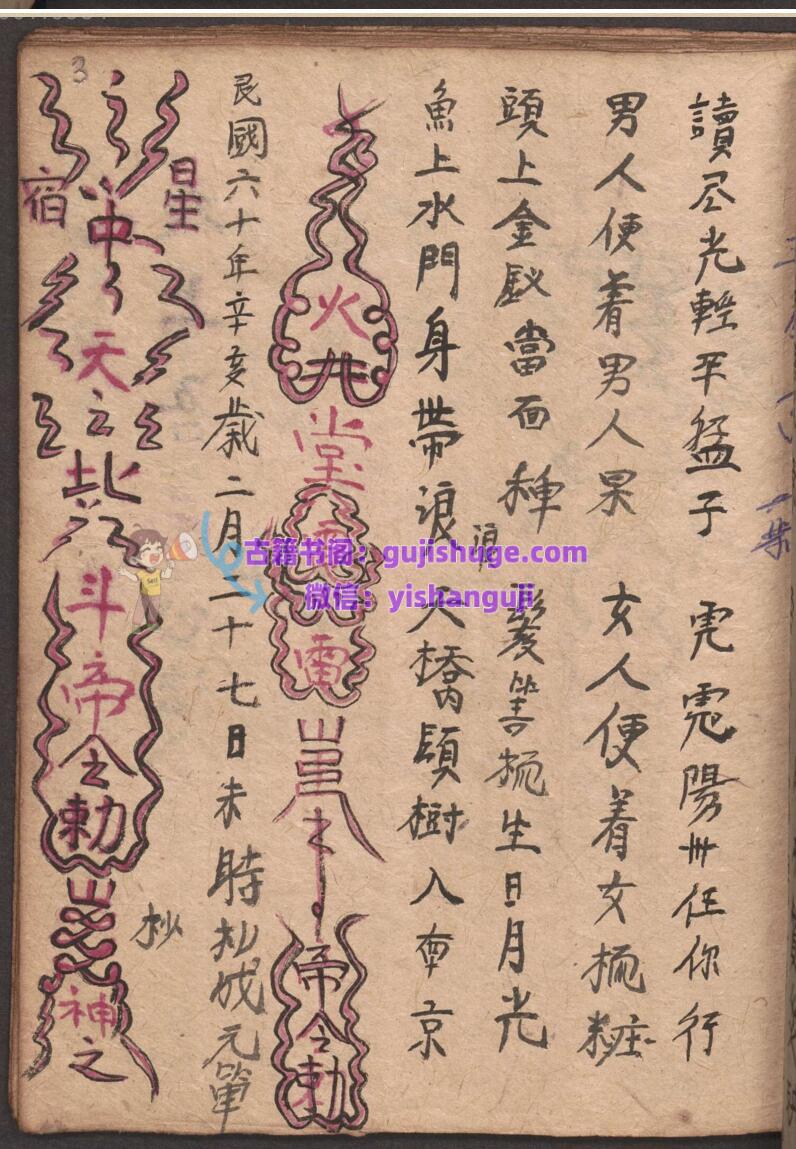 讀尽光輕平猛子 陽卅任你行
男人便着男人果 女人便着女人粧
頭上金釵當面種 髮生日月光
魚上水門身帶浪 浪 天橋頭樹入京
火 堂 雷 帝令勅
民國六十年辛亥歲二月二十七日未時抄成元單
抄
星
中天之北斗帝令勅神之
宿
3
古籍书阁：gujishuge.com
微信：yishanguji